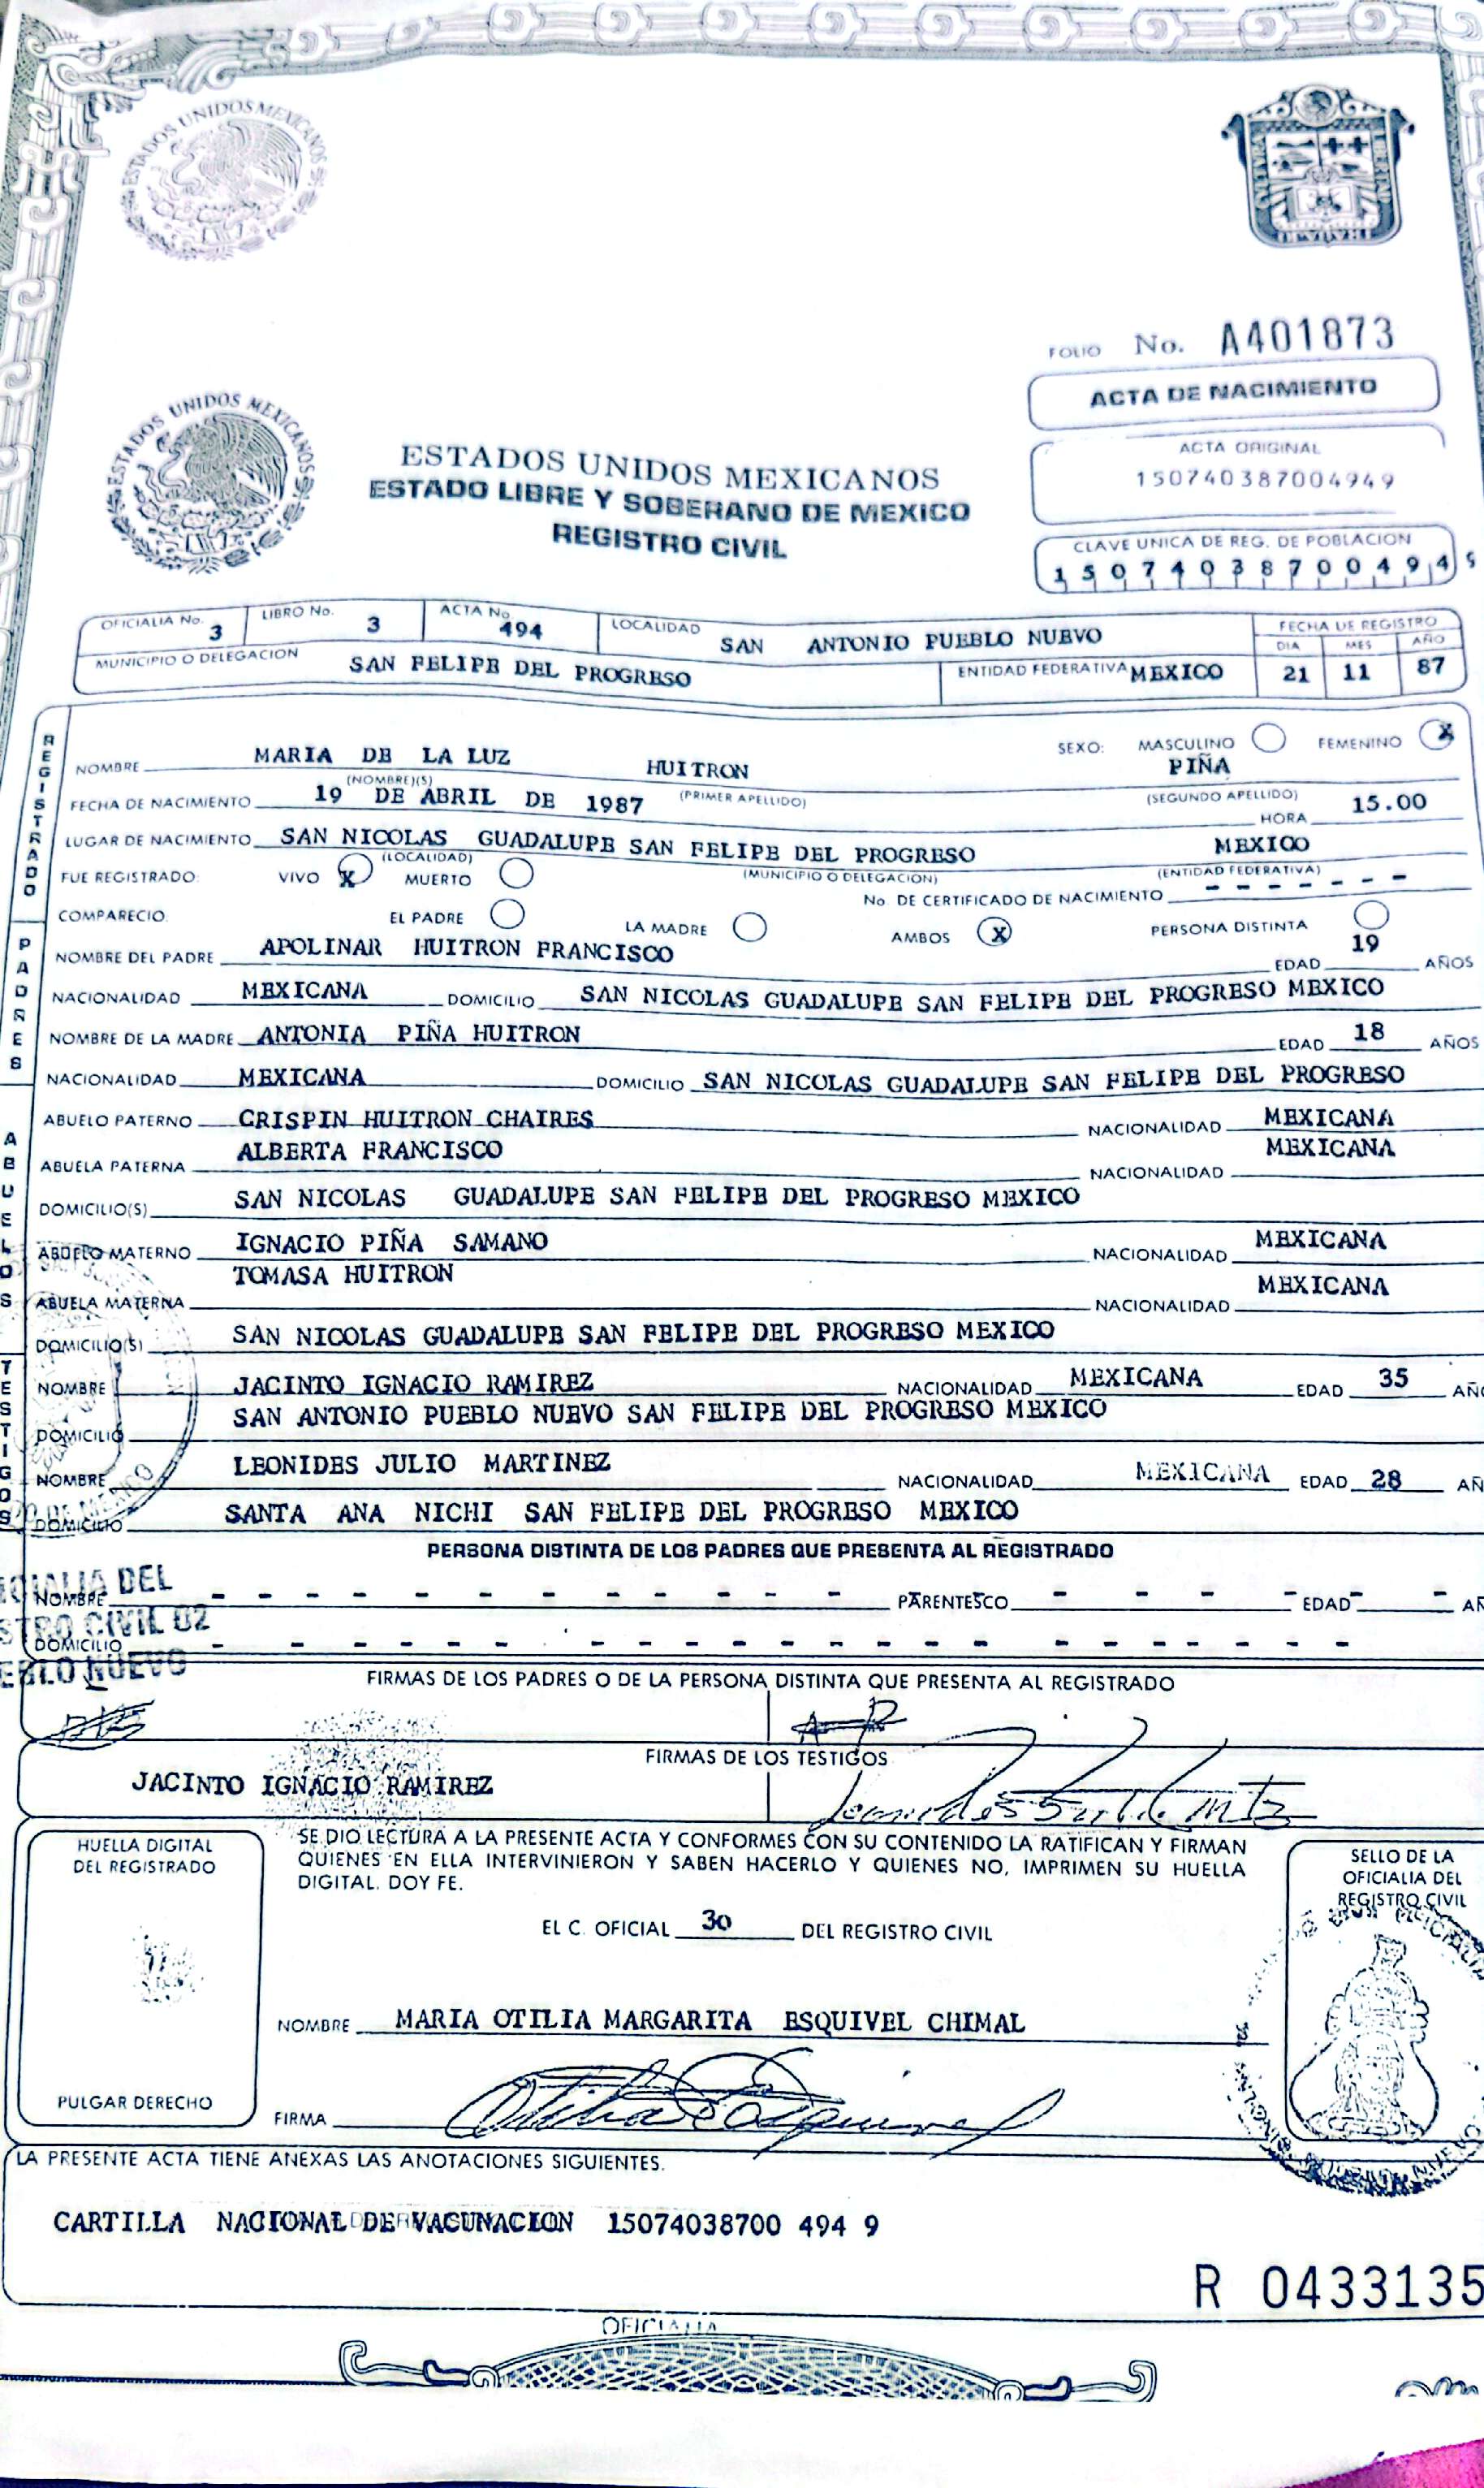 ESTADOS UNIDOS MEXICANOS
CULTURA LIBERTAD
FOLIO No. A401873
ACTA DE NACIMIENTO
ACTA ORIGINAL
150740387004949
ESTADOS UNIDOS MEXICANOS
ESTADOS UNIDOS MEXICANOS
ESTADO LIBRE Y SOBERANO DE MEXICO
REGISTRO CIVIL
CLAVE UNICA DE REG. DE POBLACION
1 5 0 7 4 0 3 8 7 0 0 4 9 4 9
OFICIALIA No. 3 LIBRO No. 3 ACTA No. 494 LOCALIDAD SAN ANTONIO PUEBLO NUEVO FECHA DE REGISTRO
DIA MES AÑO
MUNICIPIO O DELEGACION SAN FELIPE DEL PROGRESO ENTIDAD FEDERATIVA MEXICO 21 11 87
REGISTRADO
SEXO: MASCULINO FEMENINO X
NOMBRE MARIA DE LA LUZ HUITRON PIÑA
(NOMBRE)(S) (PRIMER APELLIDO) (SEGUNDO APELLIDO)
FECHA DE NACIMIENTO 19 DE ABRIL DE 1987 HORA 15.00
LUGAR DE NACIMIENTO SAN NICOLAS GUADALUPE SAN FELIPE DEL PROGRESO MEXICO
(LOCALIDAD) (MUNICIPIO O DELEGACION) (ENTIDAD FEDERATIVA)
FUE REGISTRADO: VIVO X MUERTO No. DE CERTIFICADO DE NACIMIENTO - - - - - - -
COMPARECIO: EL PADRE LA MADRE AMBOS X PERSONA DISTINTA
PADRES
NOMBRE DEL PADRE APOLINAR HUITRON FRANCISCO EDAD 19 AÑOS
NACIONALIDAD MEXICANA DOMICILIO SAN NICOLAS GUADALUPE SAN FELIPE DEL PROGRESO MEXICO
NOMBRE DE LA MADRE ANTONIA PIÑA HUITRON EDAD 18 AÑOS
NACIONALIDAD MEXICANA DOMICILIO SAN NICOLAS GUADALUPE SAN FELIPE DEL PROGRESO
ABUELOS
ABUELO PATERNO CRISPIN HUITRON CHAIRES NACIONALIDAD MEXICANA
ABUELA PATERNA ALBERTA FRANCISCO NACIONALIDAD MEXICANA
DOMICILIO(S) SAN NICOLAS GUADALUPE SAN FELIPE DEL PROGRESO MEXICO
ABUELO MATERNO IGNACIO PIÑA SAMANO NACIONALIDAD MEXICANA
ABUELA MATERNA TOMASA HUITRON NACIONALIDAD MEXICANA
DOMICILIO(S) SAN NICOLAS GUADALUPE SAN FELIPE DEL PROGRESO MEXICO
TESTIGOS
NOMBRE JACINTO IGNACIO RAMIREZ NACIONALIDAD MEXICANA EDAD 35 AÑO
DOMICILIO SAN ANTONIO PUEBLO NUEVO SAN FELIPE DEL PROGRESO MEXICO
NOMBRE LEONIDES JULIO MARTINEZ NACIONALIDAD MEXICANA EDAD 28 AÑ
DOMICILIO SANTA ANA NICHI SAN FELIPE DEL PROGRESO MEXICO
PERSONA DISTINTA DE LOS PADRES QUE PRESENTA AL REGISTRADO
NOMBRE - - - - - - - - - - - - - - PARENTESCO - - - - EDAD - - AÑ
DOMICILIO - - - - - - - - - - - - - - - - - - -
CIALIA DEL
STRO CIVIL 02
EBLO NUEVO
FIRMAS DE LOS PADRES O DE LA PERSONA DISTINTA QUE PRESENTA AL REGISTRADO
FIRMAS DE LOS TESTIGOS
JACINTO IGNACIO RAMIREZ
HUELLA DIGITAL
DEL REGISTRADO
PULGAR DERECHO
SE DIO LECTURA A LA PRESENTE ACTA Y CONFORMES CON SU CONTENIDO LA RATIFICAN Y FIRMAN
QUIENES EN ELLA INTERVINIERON Y SABEN HACERLO Y QUIENES NO, IMPRIMEN SU HUELLA
DIGITAL. DOY FE.
SELLO DE LA
OFICIALIA DEL
REGISTRO CIVIL
EL C. OFICIAL 3o DEL REGISTRO CIVIL
NOMBRE MARIA OTILIA MARGARITA ESQUIVEL CHIMAL
FIRMA
LA PRESENTE ACTA TIENE ANEXAS LAS ANOTACIONES SIGUIENTES.
CARTILLA NACIONAL DE VACUNACION 15074038700 494 9
R 0433135
OFICIALIA